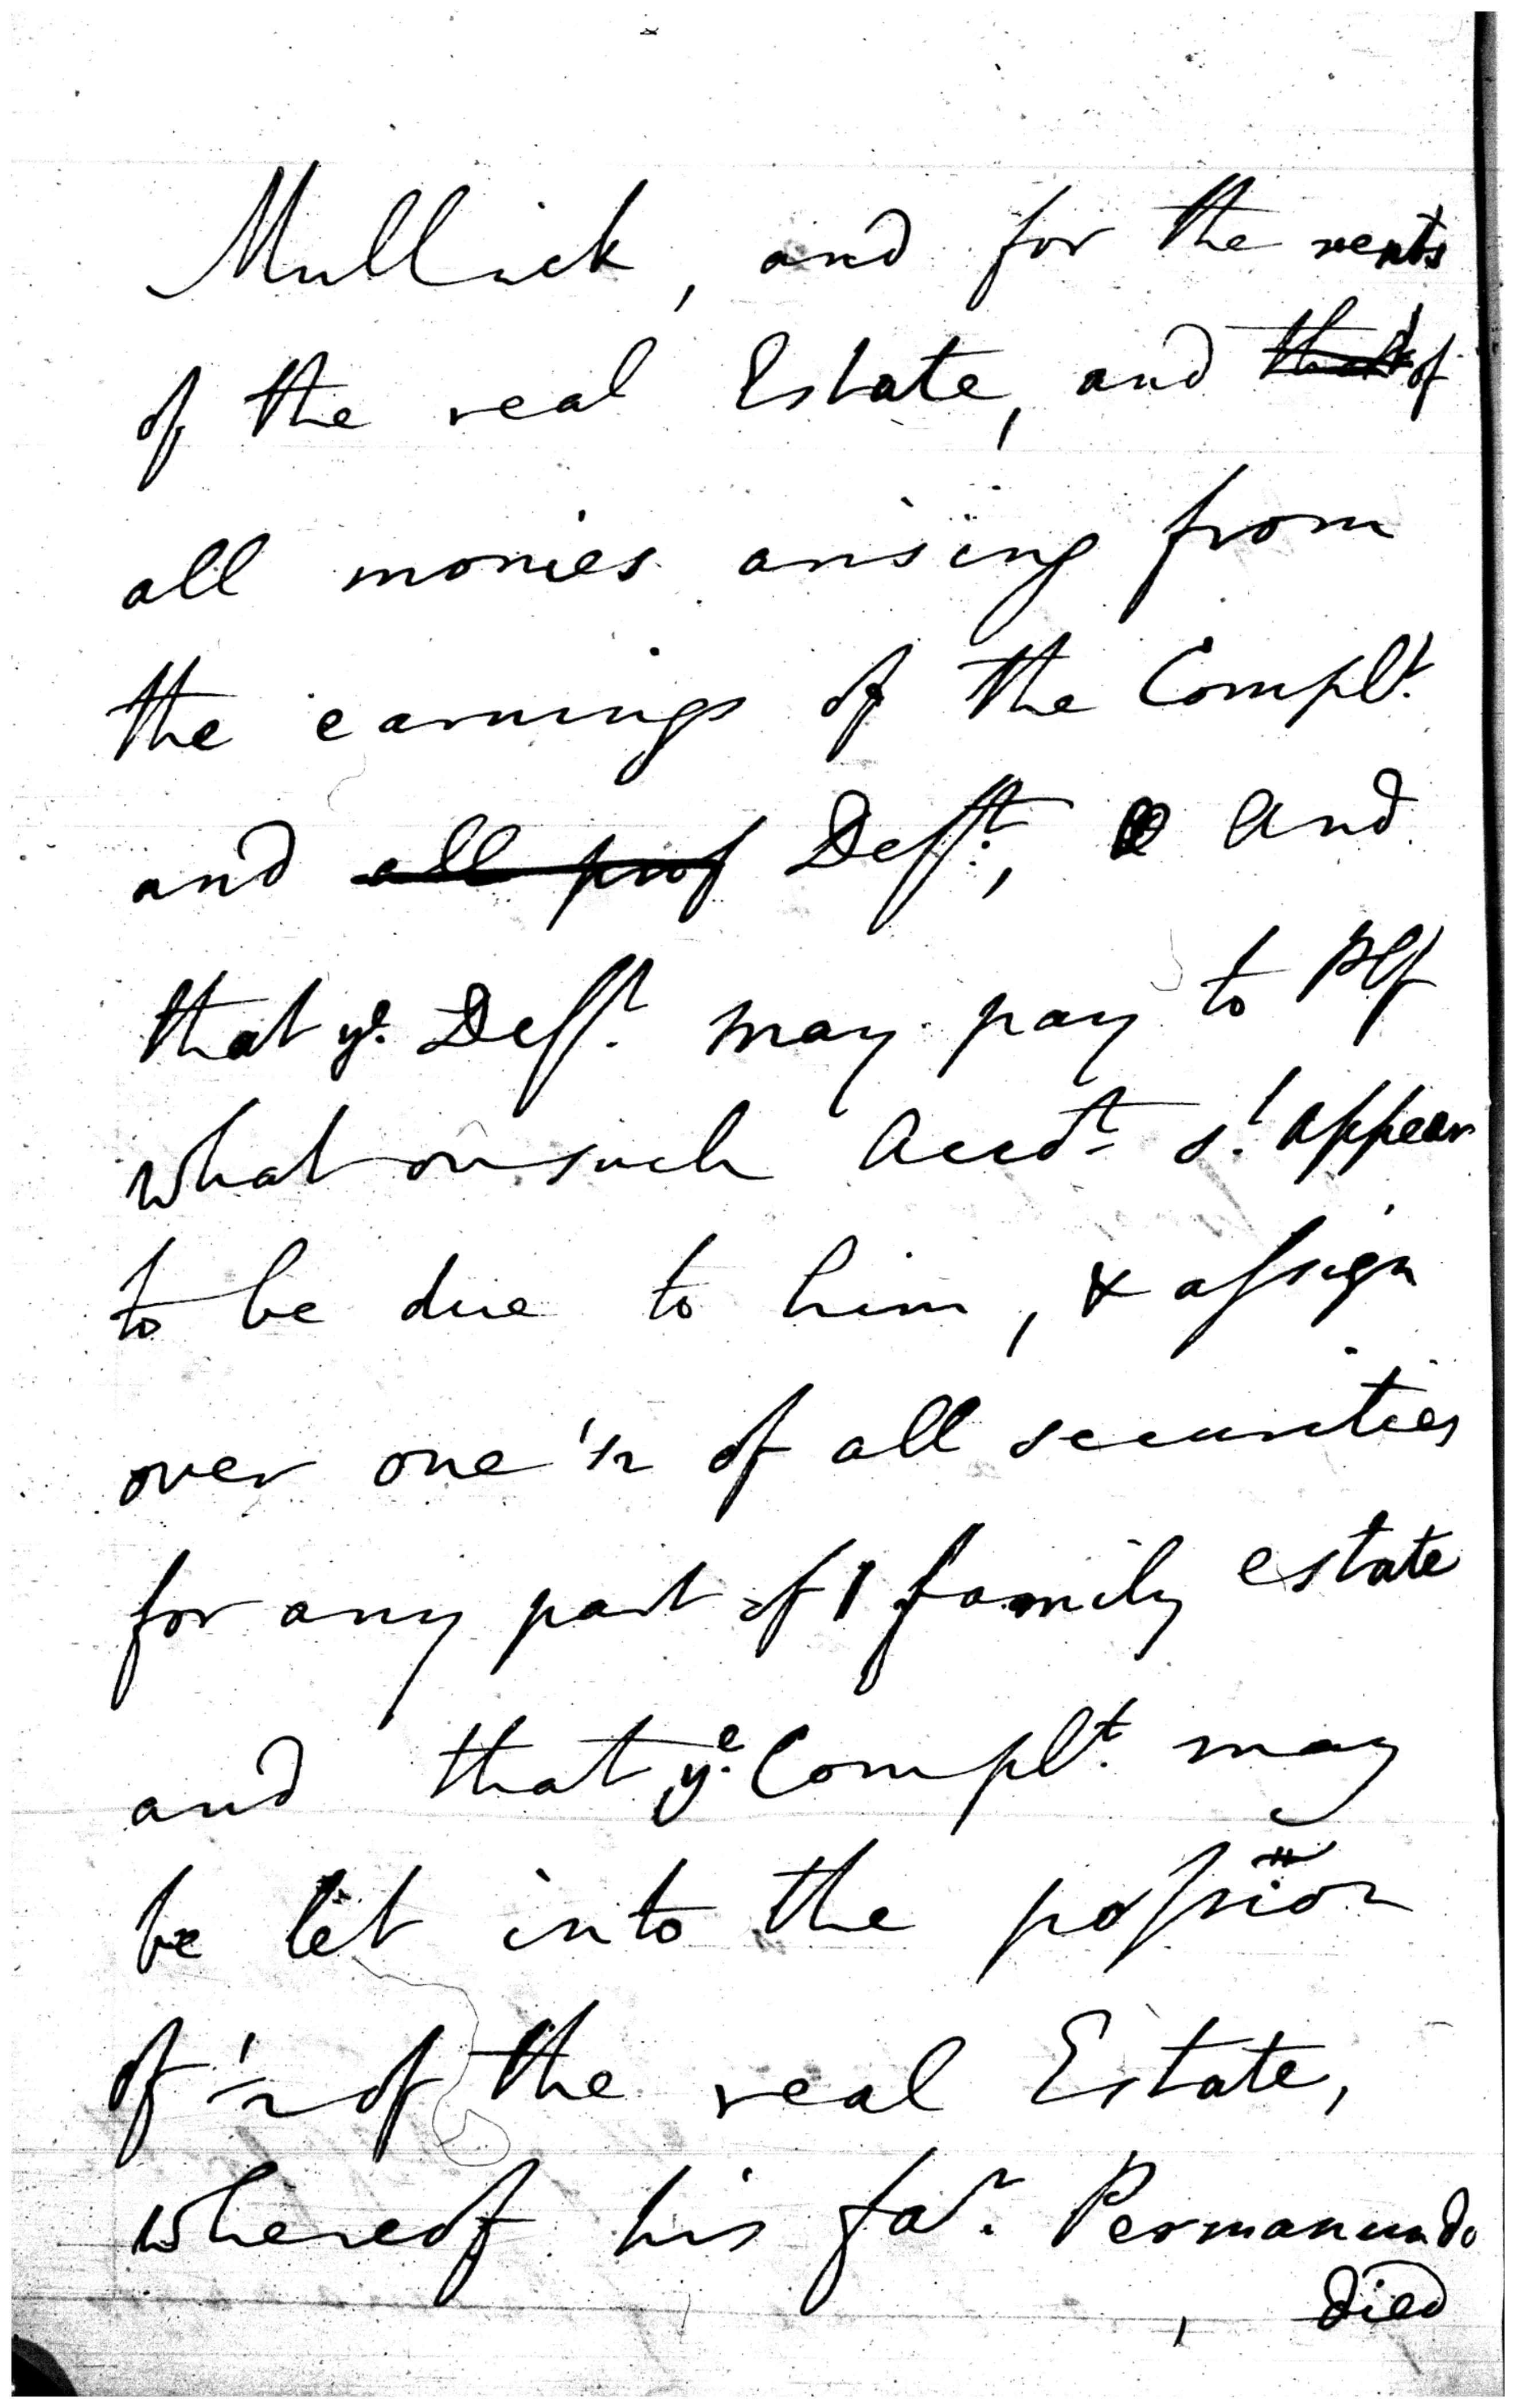 Mullick, and for the rents
of the real Estate, and that of
all monies arising from
the earnings of the Complt.
and all prof Deft., and
that ye. Deft. may pay to Plf
what on such Accot. sd. appear
to be due to him, & assign
over one 1/2 of all securities
for any part of family estate
and that ye. Complt. may
be let into the possion
of 1/2 of the real Estate,
whereof his far. Permanundo
died